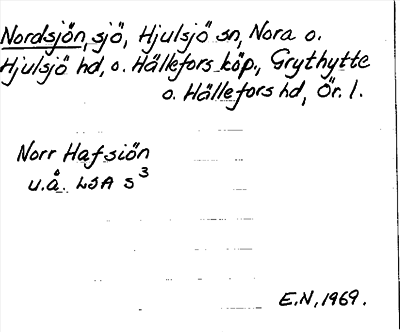 Nordsjön, sjö, Hjulsjö sn, Nora o.
Hjulsjö hd, o. Hällefors köp., Grythytte
o. Hällefors hd, Ör. l.
Norr Hafsiön
u.å. LSA S3
E.N, 1969.